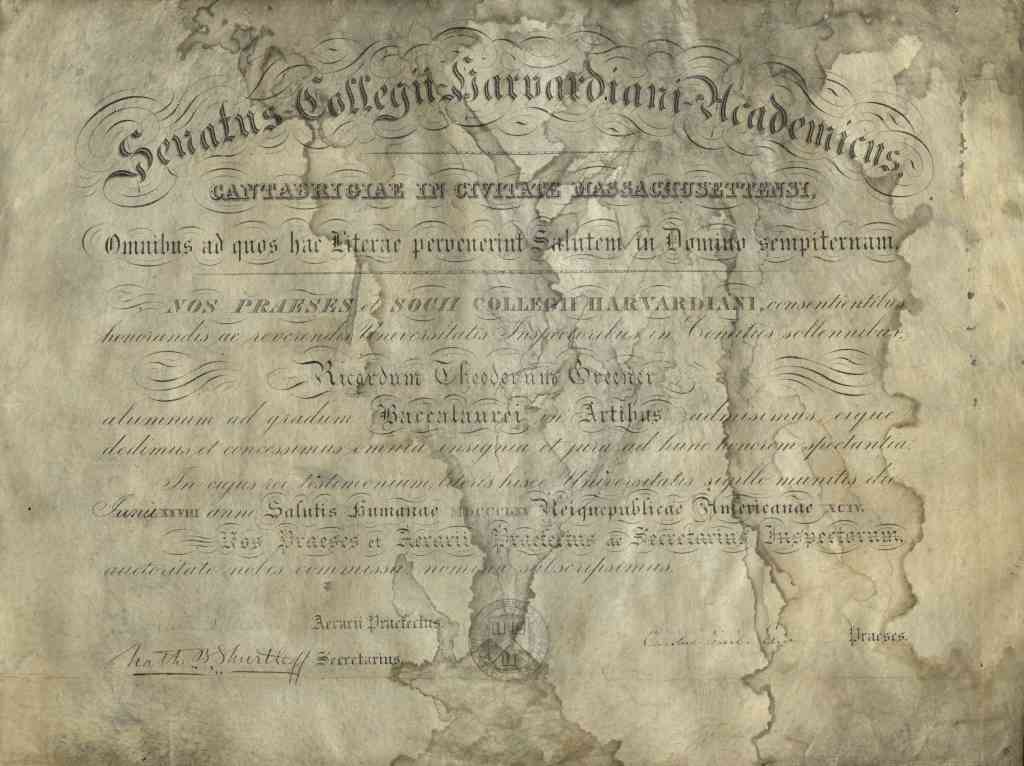 Senatus Collegii Harvardiani Academicus,
CANTABRIGIAE IN CIVITATE MASSACHUSETTENSI,
Omnibus ad quos hae Literae pervenerint Salutem in Domino sempiternam.
NOS PRAESES et SOCII COLLEGII HARVARDIANI, consentientibus
honorandis ac reverendis Universitatis Inspectoribus, in Comitiis sollennibus,
Ricardum Theodorum Greener
alumnum ad gradum Baccalaurei in Artibus admisimus, eique
dedimus et concessimus omnia insignia et jura ad hunc honorem spectantia.
In cujus rei testimonium, literis hisce Universitatis sigillo munitis die
Junii XXVIII anno Salutis Humanae MDCCCLXX Reiquepublicae Americanae XCIV.
Nos Praeses et Aerarii Praefectus ac Secretarius Inspectorum,
auctoritate nobis commissa, nomina subscripsimus.
Aerarii Praefectus.
Praeses.
Nath. B. Shurtleff Secretarius.